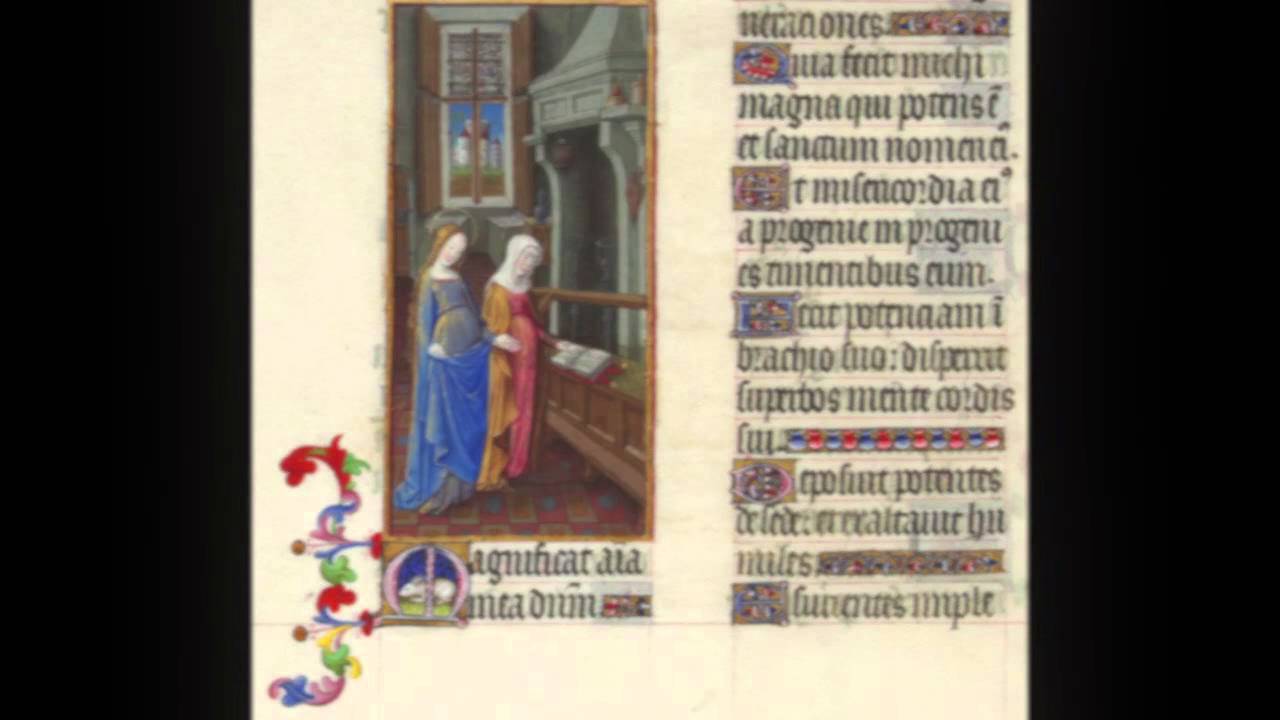 Magnificat aīa
mea dnm̄
neraciones
Quia fecit michi
magna qui potens ē
et sanctum nomen ei.
Et misericordia ei⁹
a progenie in progeni
es timentibus eum.
Fecit potenciam ī
brachio suo: dispersit
superbos mente cordis
sui.
Deposuit potentes
de sede: et exaltauit hu
miles
Esurientes imple